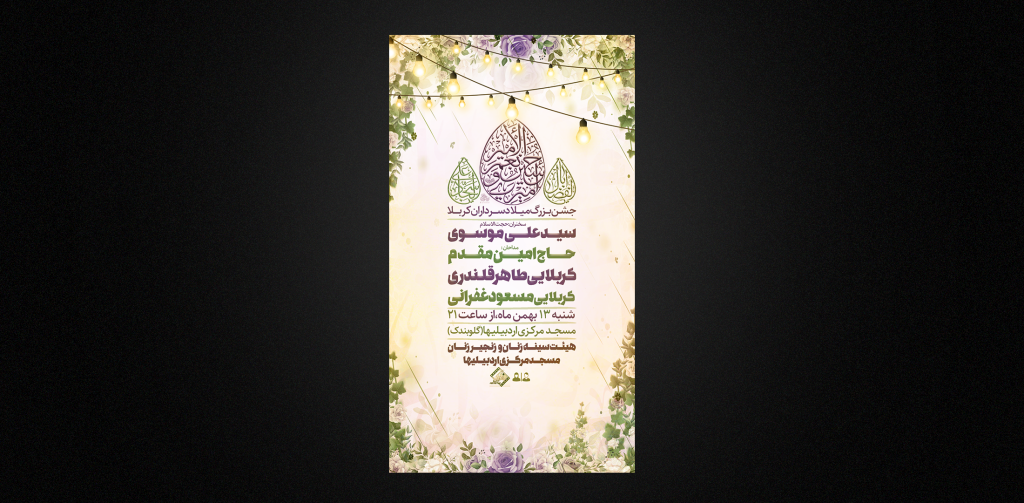 امیری حسین و نعم الامیر
یا ابالفضل
جشن بزرگ میلاد سرداران کربلا
سخنران: حجت الاسلام
سید علی موسوی
مداحان:
حاج امین مقدم
کربلایی طاهر قلندری
کربلایی مسعود غفرانی
شنبه ۱۳ بهمن ماه، از ساعت ۲۱
مسجد مرکزی اردبیلیها (گلوبندک)
هیئت سینه زنان و زنجیر زنان
مسجد مرکزی اردبیلیها